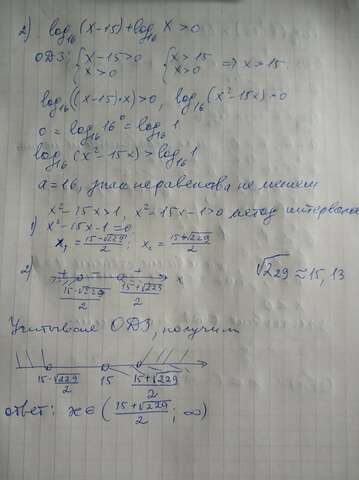 2) log₁₆(x-15)+log₁₆ x>0
ОДЗ: { x-15>0 { x>15
x>0 x>0 => x>15
log₁₆((x-15)·x)>0, log₁₆(x²-15x)>0
0 = log₁₆ 16⁰ = log₁₆ 1
log₁₆(x²-15x)>log₁₆ 1
a=16, знак неравенства не меняем
x²-15x>1, x²-15x-1>0 метод интервалов
1) x²-15x-1=0
x₁ = (15-√229)/2; x₂ = (15+√229)/2
√229 ≈ 15,13
2) + - + x
(15-√229)/2 (15+√229)/2
Учитывая ОДЗ, получим
(15-√229)/2 15 (15+√229)/2
ответ: x∈((15+√229)/2; ∞)